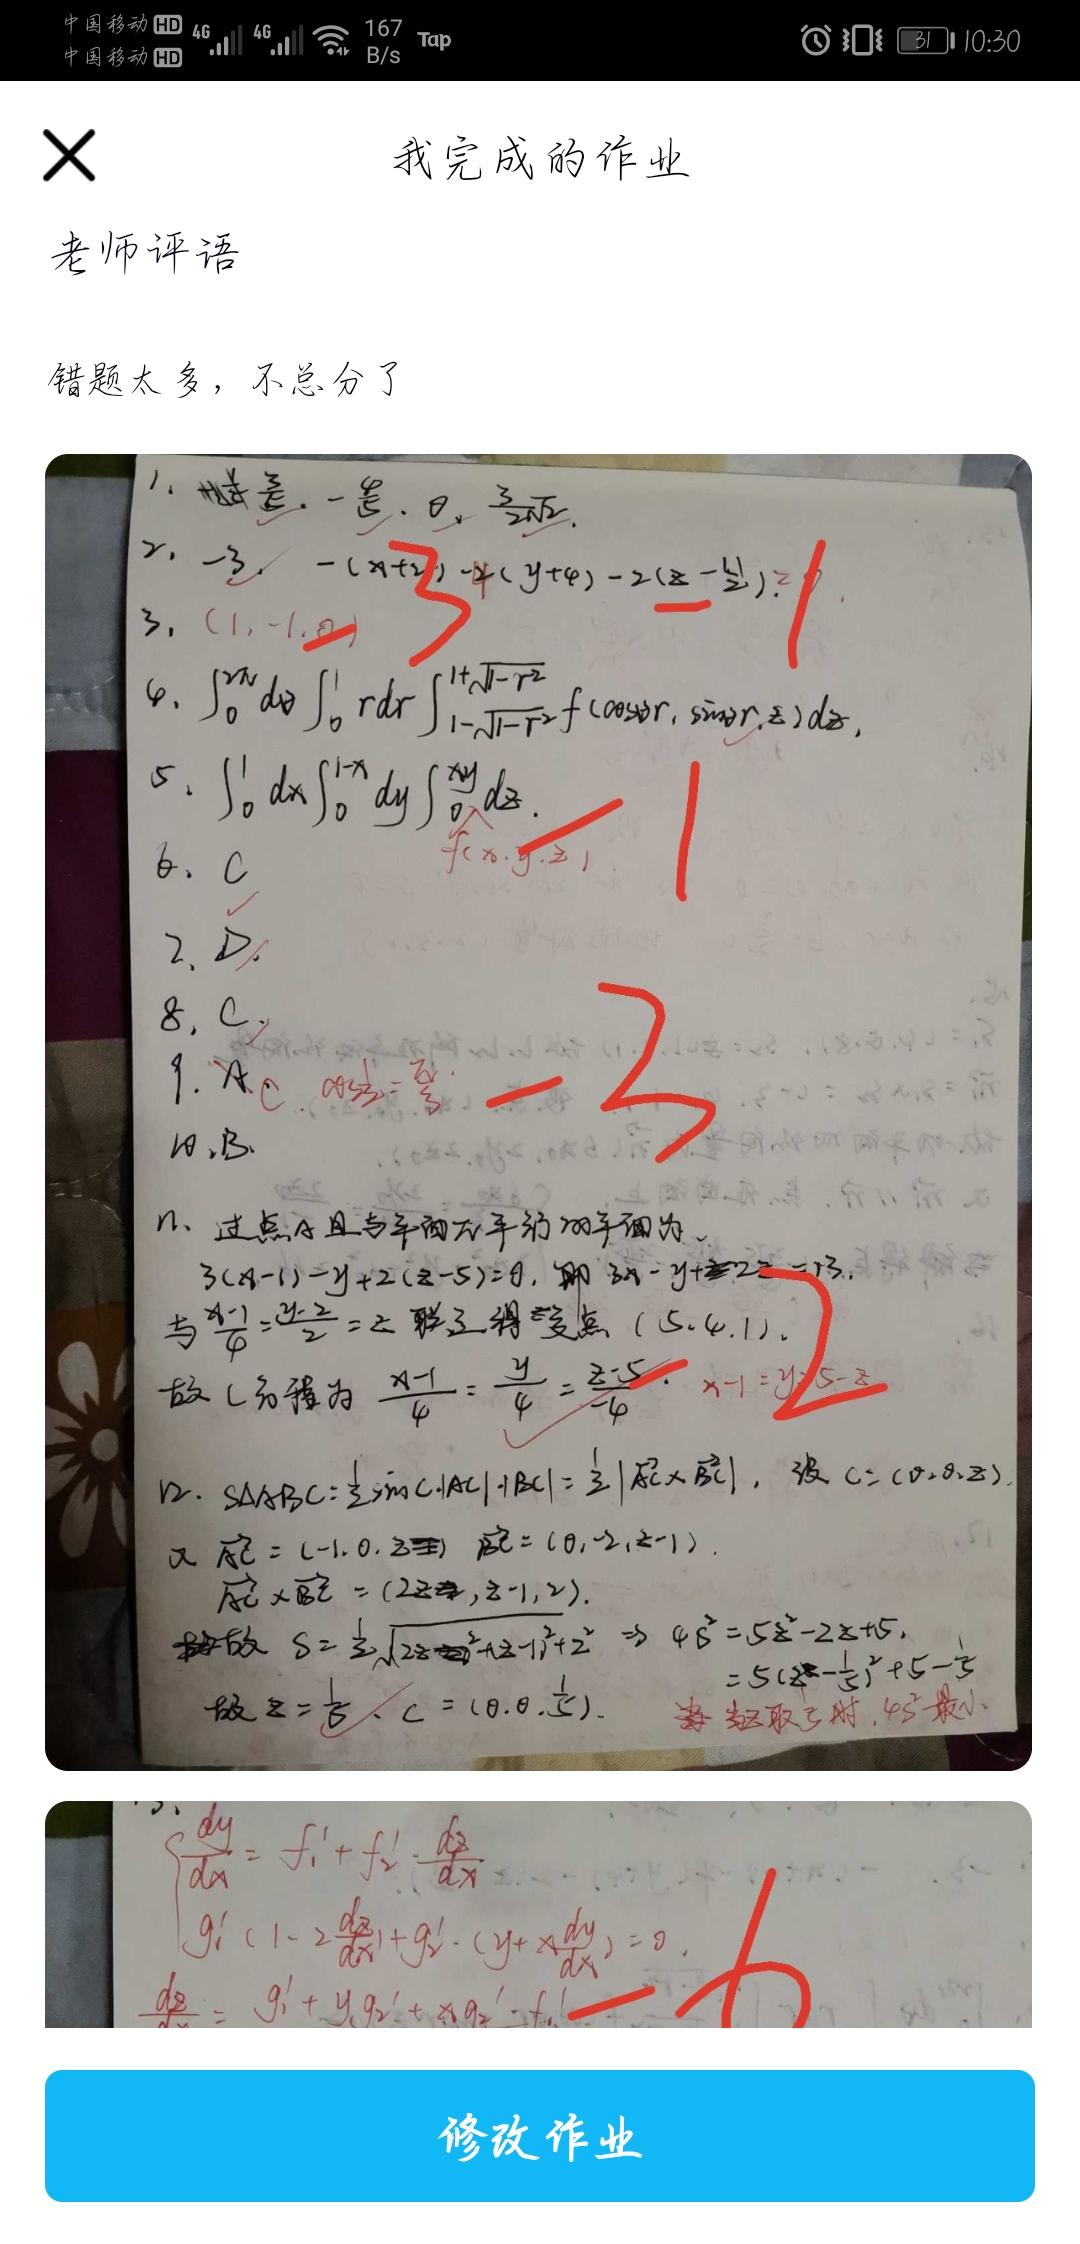 中国移动HD 4G 4G 167 B/s Tap 31 10:30
中国移动HD
我完成的作业
老师评语
错题太多，不总分了
1. 3/5. -4/5. 0, 3/2√2.
2. -3. -(x+2) -4(y+4) -2(z-1/2)=0.
3. (1,-1,0)
-3
-1
4. ∫₀^2π dθ ∫₀^1 rdr ∫_{1-√1-r²}^{1+√1-r²} f(cosθr, sinθr, z)dz.
5. ∫₀^1 dx ∫₀^{1-x} dy ∫₀^{xy} dz.
f(x.y.z)
-1
6. C
7. D.
8. C.
9. A. C.
-3
10. B.
11. 过点A且与平面π平行的平面为
3(x-1)-y+2(z-5)=0. 即 3x-y+2z=13.
与 x-1/4 = y-2/2 = z 联立得交点 (5.4.1).
故L方程为 x-1/4 = y/4 = z-5/-4. x-1=y=5-z
-2
12. S△ABC=1/2 sinC·|AC|·|BC|=1/2|AC×BC|, 设 C=(0.0.z).
又 AC=(-1.0.z) BC=(0,-2,z-1).
AC×BC=(2z, z-1, 2).
故 S=1/2√2z²+(z-1)²+2² ⇒ 4S²=5z²-2z+5.
=5(z-1/5)²+5-1/5
故 z=1/5, C=(0.0.1/5).
当z取1/5时, 4S²最小.
dy/dx = f₁' + f₂'·dz/dx
g₁'(1-2dz/dx)+g₂'·(y+x dy/dx)=0.
dz/dx = g₁'+yg₂'+xg₂'·f₁'
-6
修改作业